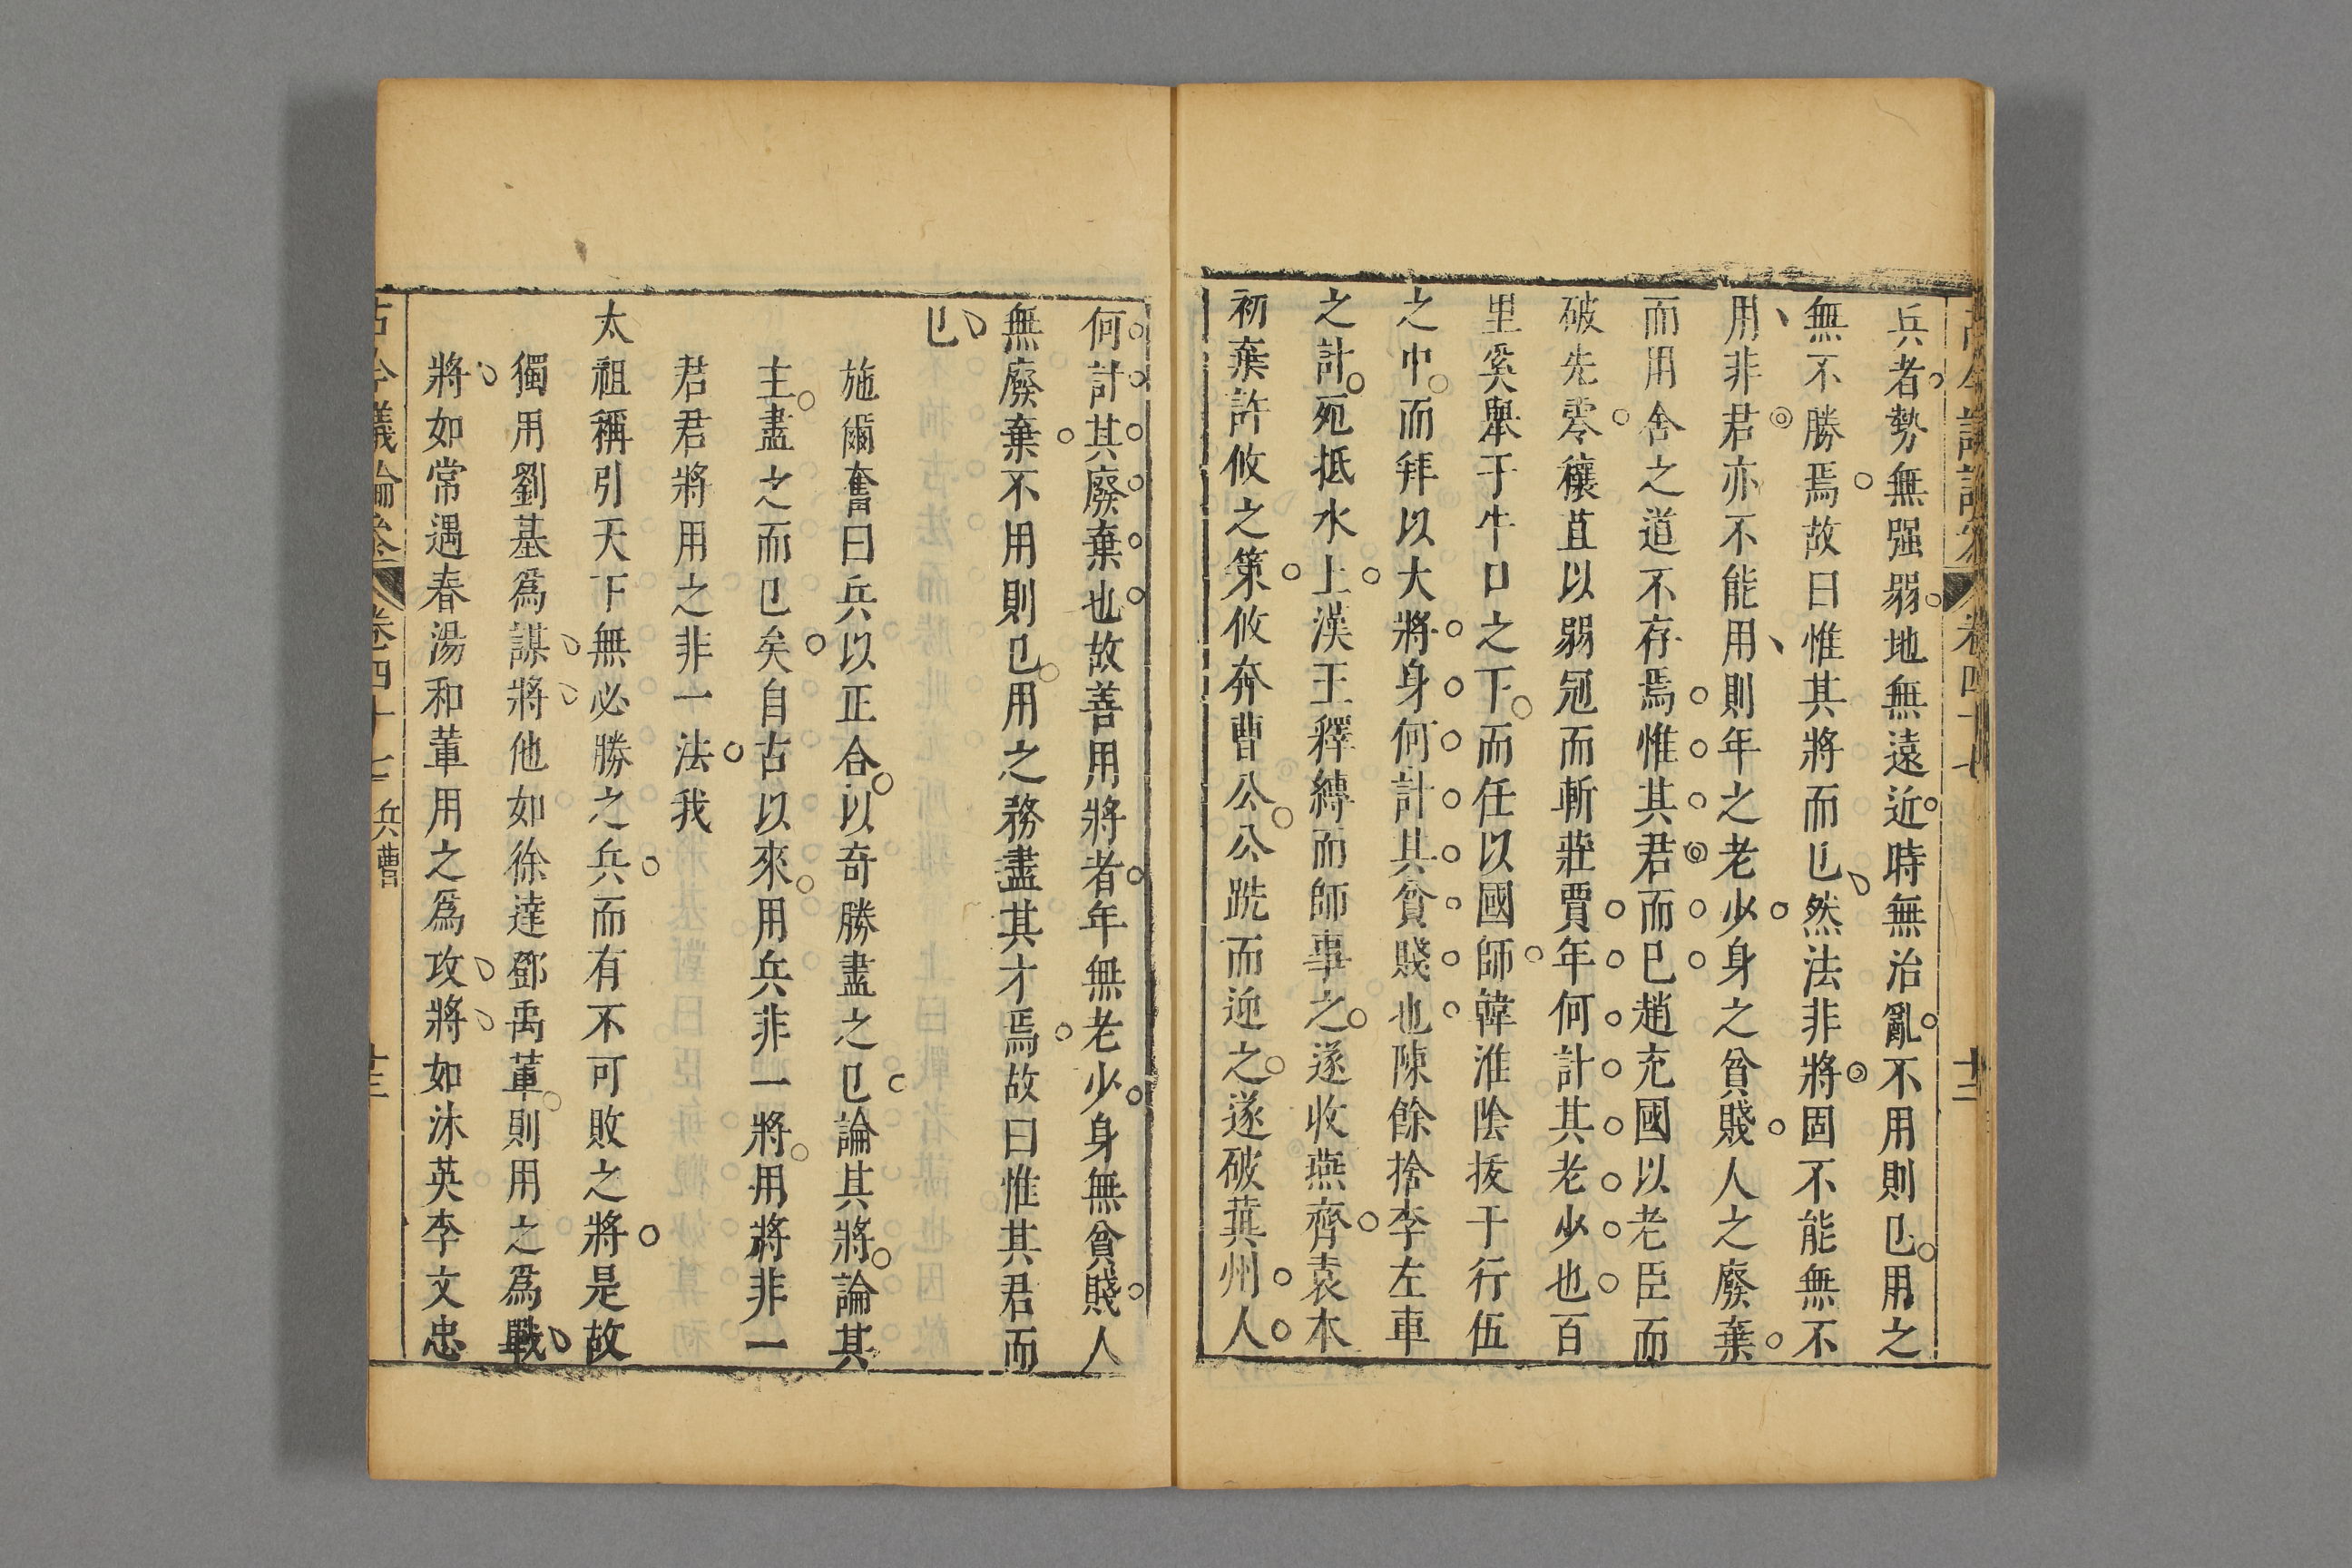 兵者勢無强弱地無遠近時無治亂不用則已用之
無不勝焉故曰惟其將而已然法非將固不能無不
用非君亦不能用則年之老少身之貧賤人之廢棄
而用舍之道不存焉惟其君而已趙充國以老臣而
破先零穰苴以弱冠而斬莊賈年何計其老少也百
里奚舉于牛口之下而任以國師韓淮陰拔于行伍
之中而拜以大將身何計其貧賤也陳餘捨李左車
之計死抵水上漢王釋縛而師事之遂收燕齊袁本
初棄許攸之策攸奔曹公公跣而迎之遂破蓂州人
何計其廢棄也故善用將者年無老少身無貧賤人
無廢棄不用則已用之務盡其才焉故曰惟其君而
已
施爾奮曰兵以正合以奇勝盡之已論其將論其
主盡之而已矣自古以來用兵非一將用將非一
君君將用之非一法我
太祖稱引天下無必勝之兵而有不可敗之將是故
獨用劉基爲謀將他如徐達鄧禹軰則用之爲戰
將如常遇春湯和軰用之爲攻將如沐英李文忠
古今議論參 卷四十七 兵曹 十三